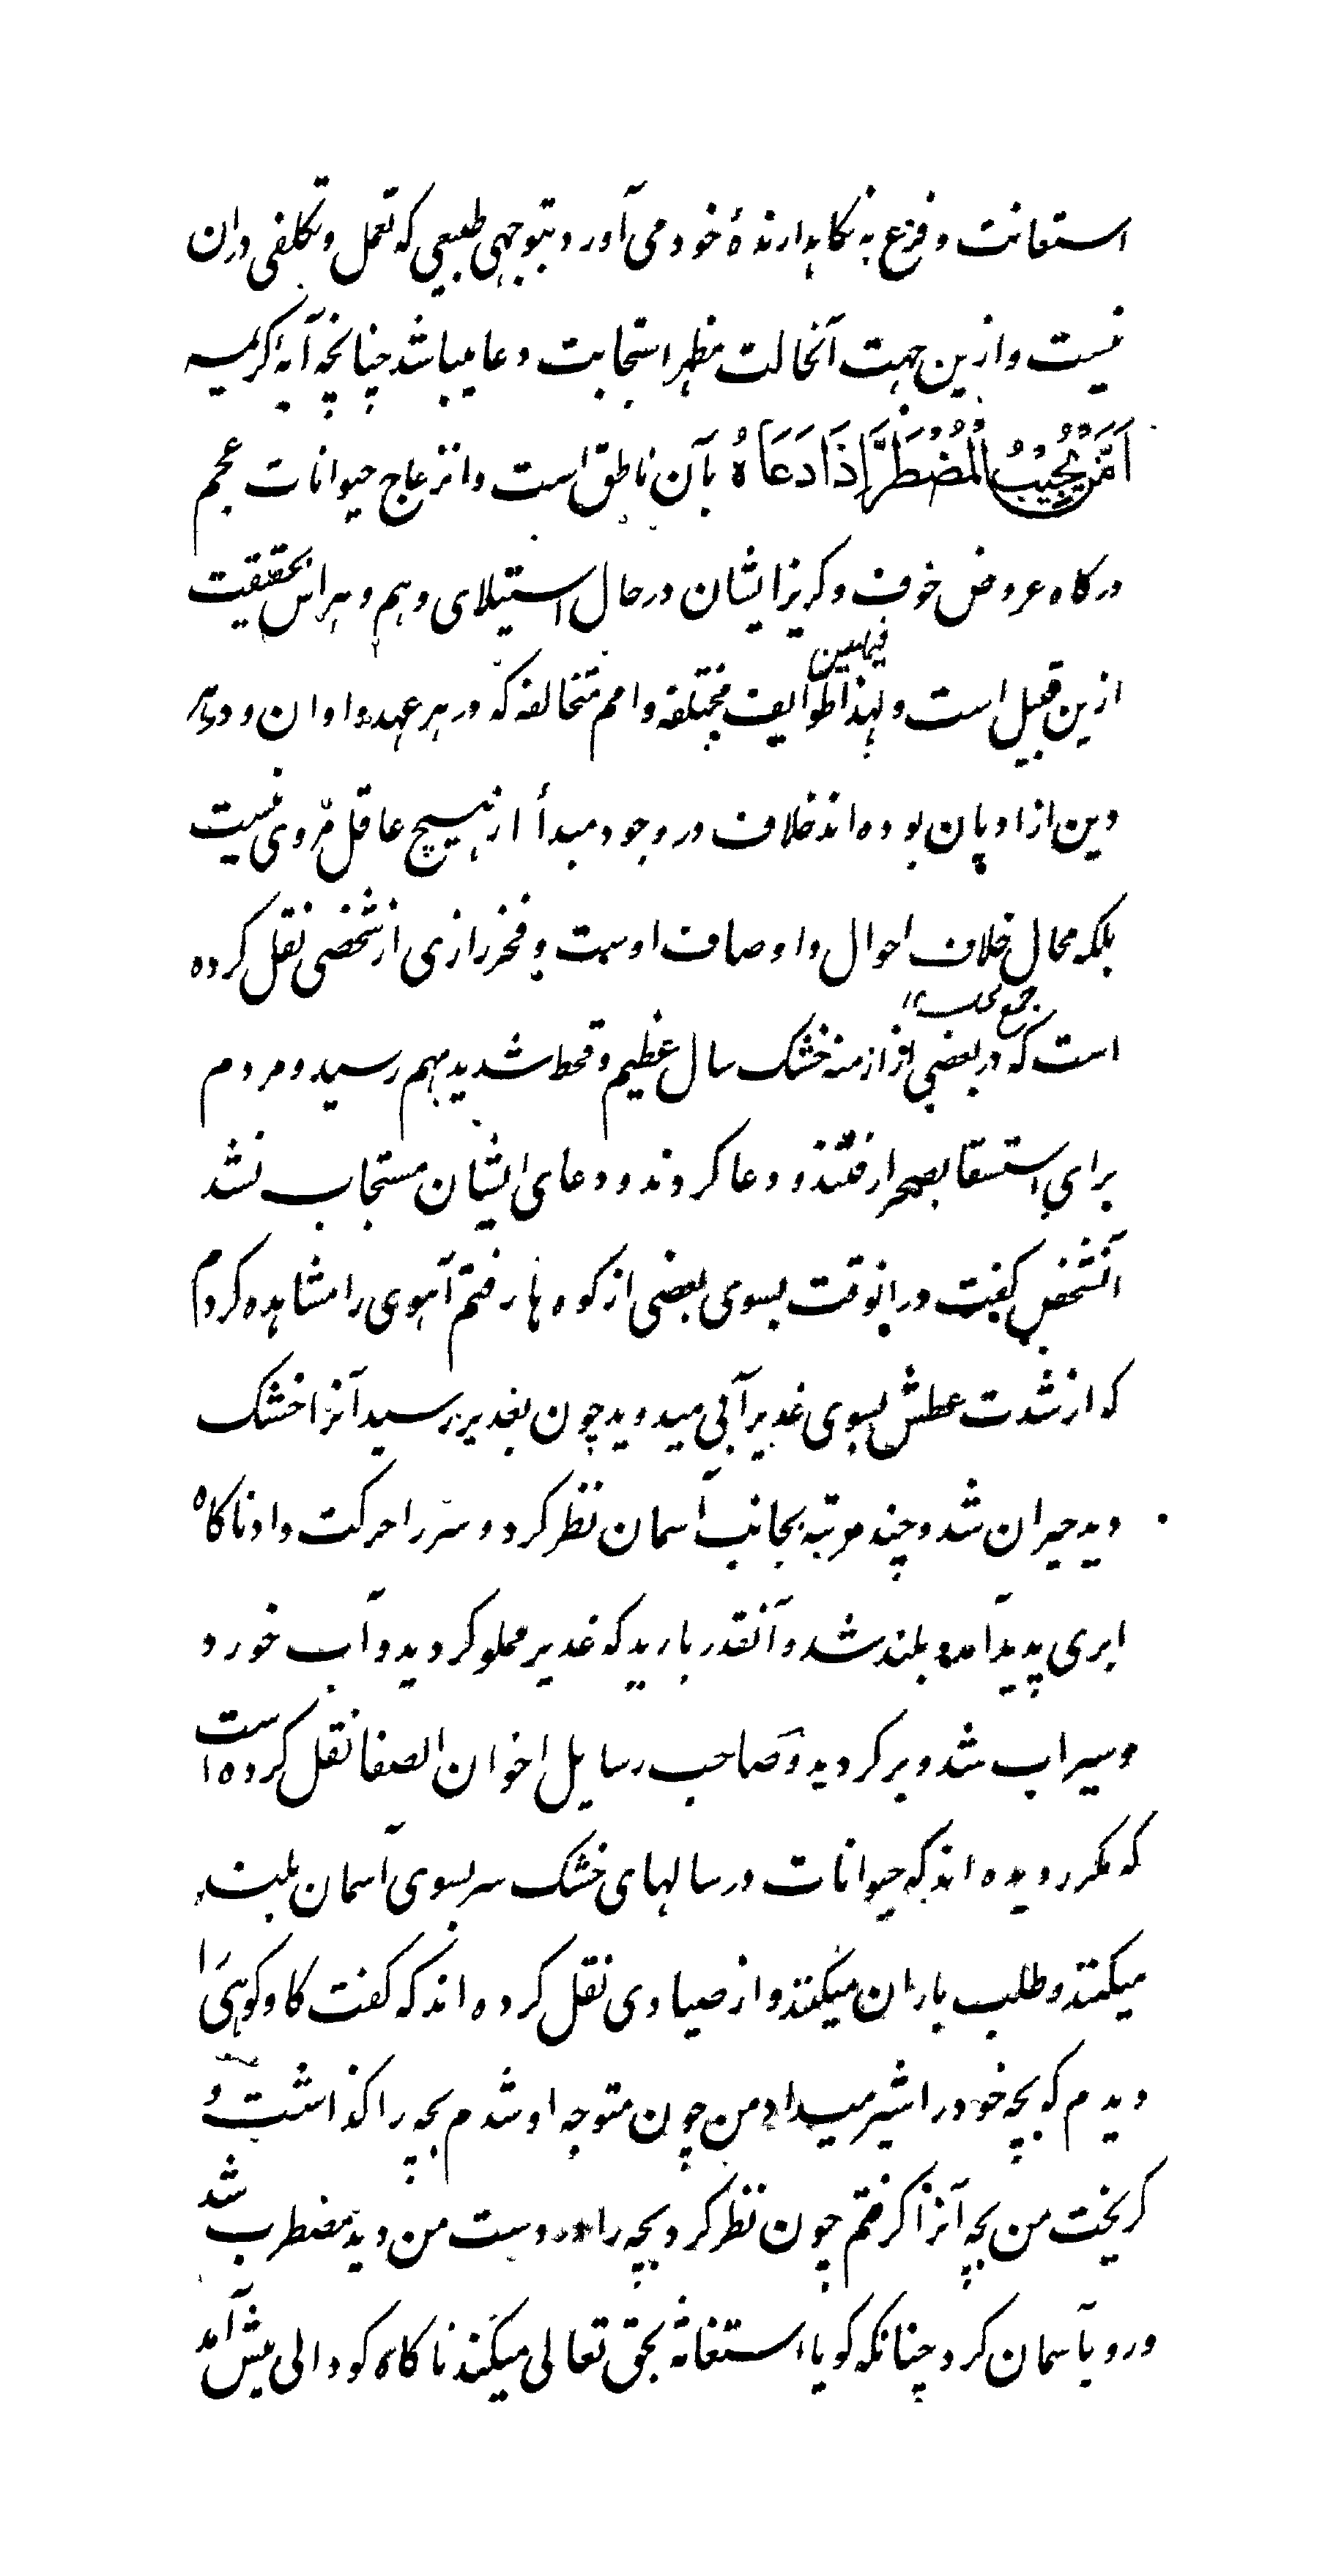 استعانت و فزع به نکاهدارندهٔ خود می آورد بتوجهی طبیعی که تعمل و تکلفی دران
نیست و ازین جهت آنحالت مظهر استجابت دعا میباشد چنانچه آیهٔ کریمه
اَمَّنْ یُجِیْبُ الْمُضْطَرَّ اِذَا دَعَاهُ بآن ناطق است و انزعاج حیوانات عجم
در کاه عروض خوف و کریز ایشان در حال استیلای وهم و هراس بحقیقت
ازین قبیل است و لهذا طوایف مختلفه و امم متخالفه که در هر عهد و اوان و
دین از ادیان بوده اند خلاف در وجود مبدأ از هیچ عاقل مروی نیست
بلکه محال خلاف احوال و اوصاف اوست و فخر رازی از شخصی نقل کرده
است که در بعضی از ازمنه خشک سال عظیم و قحط شدید بهم رسید و مردم
برای استسقا بصحرا رفتند و دعا کردند و دعای ایشان مستجاب نشد
آنشخص کفت در انوقت بسوی بعضی از کوه ها رفتم آهوی را مشاهده کردم
که از شدت عطش بسوی غدیر آبی میدوید چون بغدیر رسید آنرا خشک
دید حیران شد و چند مرتبه بجانب آسمان نظر کرد و سر را حرکت داد ناکاه
ابری پدید آمد و بلند شد و آنقدر بارید که غدیر مملو کردید و آب خورد
و سیراب شد و بر کردید و صاحب رسایل اخوان الصفا نقل کرده است
که مکرر دیده اند که حیوانات در سالهای خشک سر بسوی آسمان بلند
میکنند و طلب باران میکنند و از صیادی نقل کرده اند که کفت کاو کوهی را
دیدم که بچه خود را شیر میداد من چون متوجه او شدم بچه را کذاشت و
کریخت من بچه آنرا کرفتم چون نظر کرد و بچه را در دست من دید مضطرب شد
و رو بآسمان کرد چنانکه کویا استغاثه بحق تعالی میکند ناکاه کودالی پیش آمد